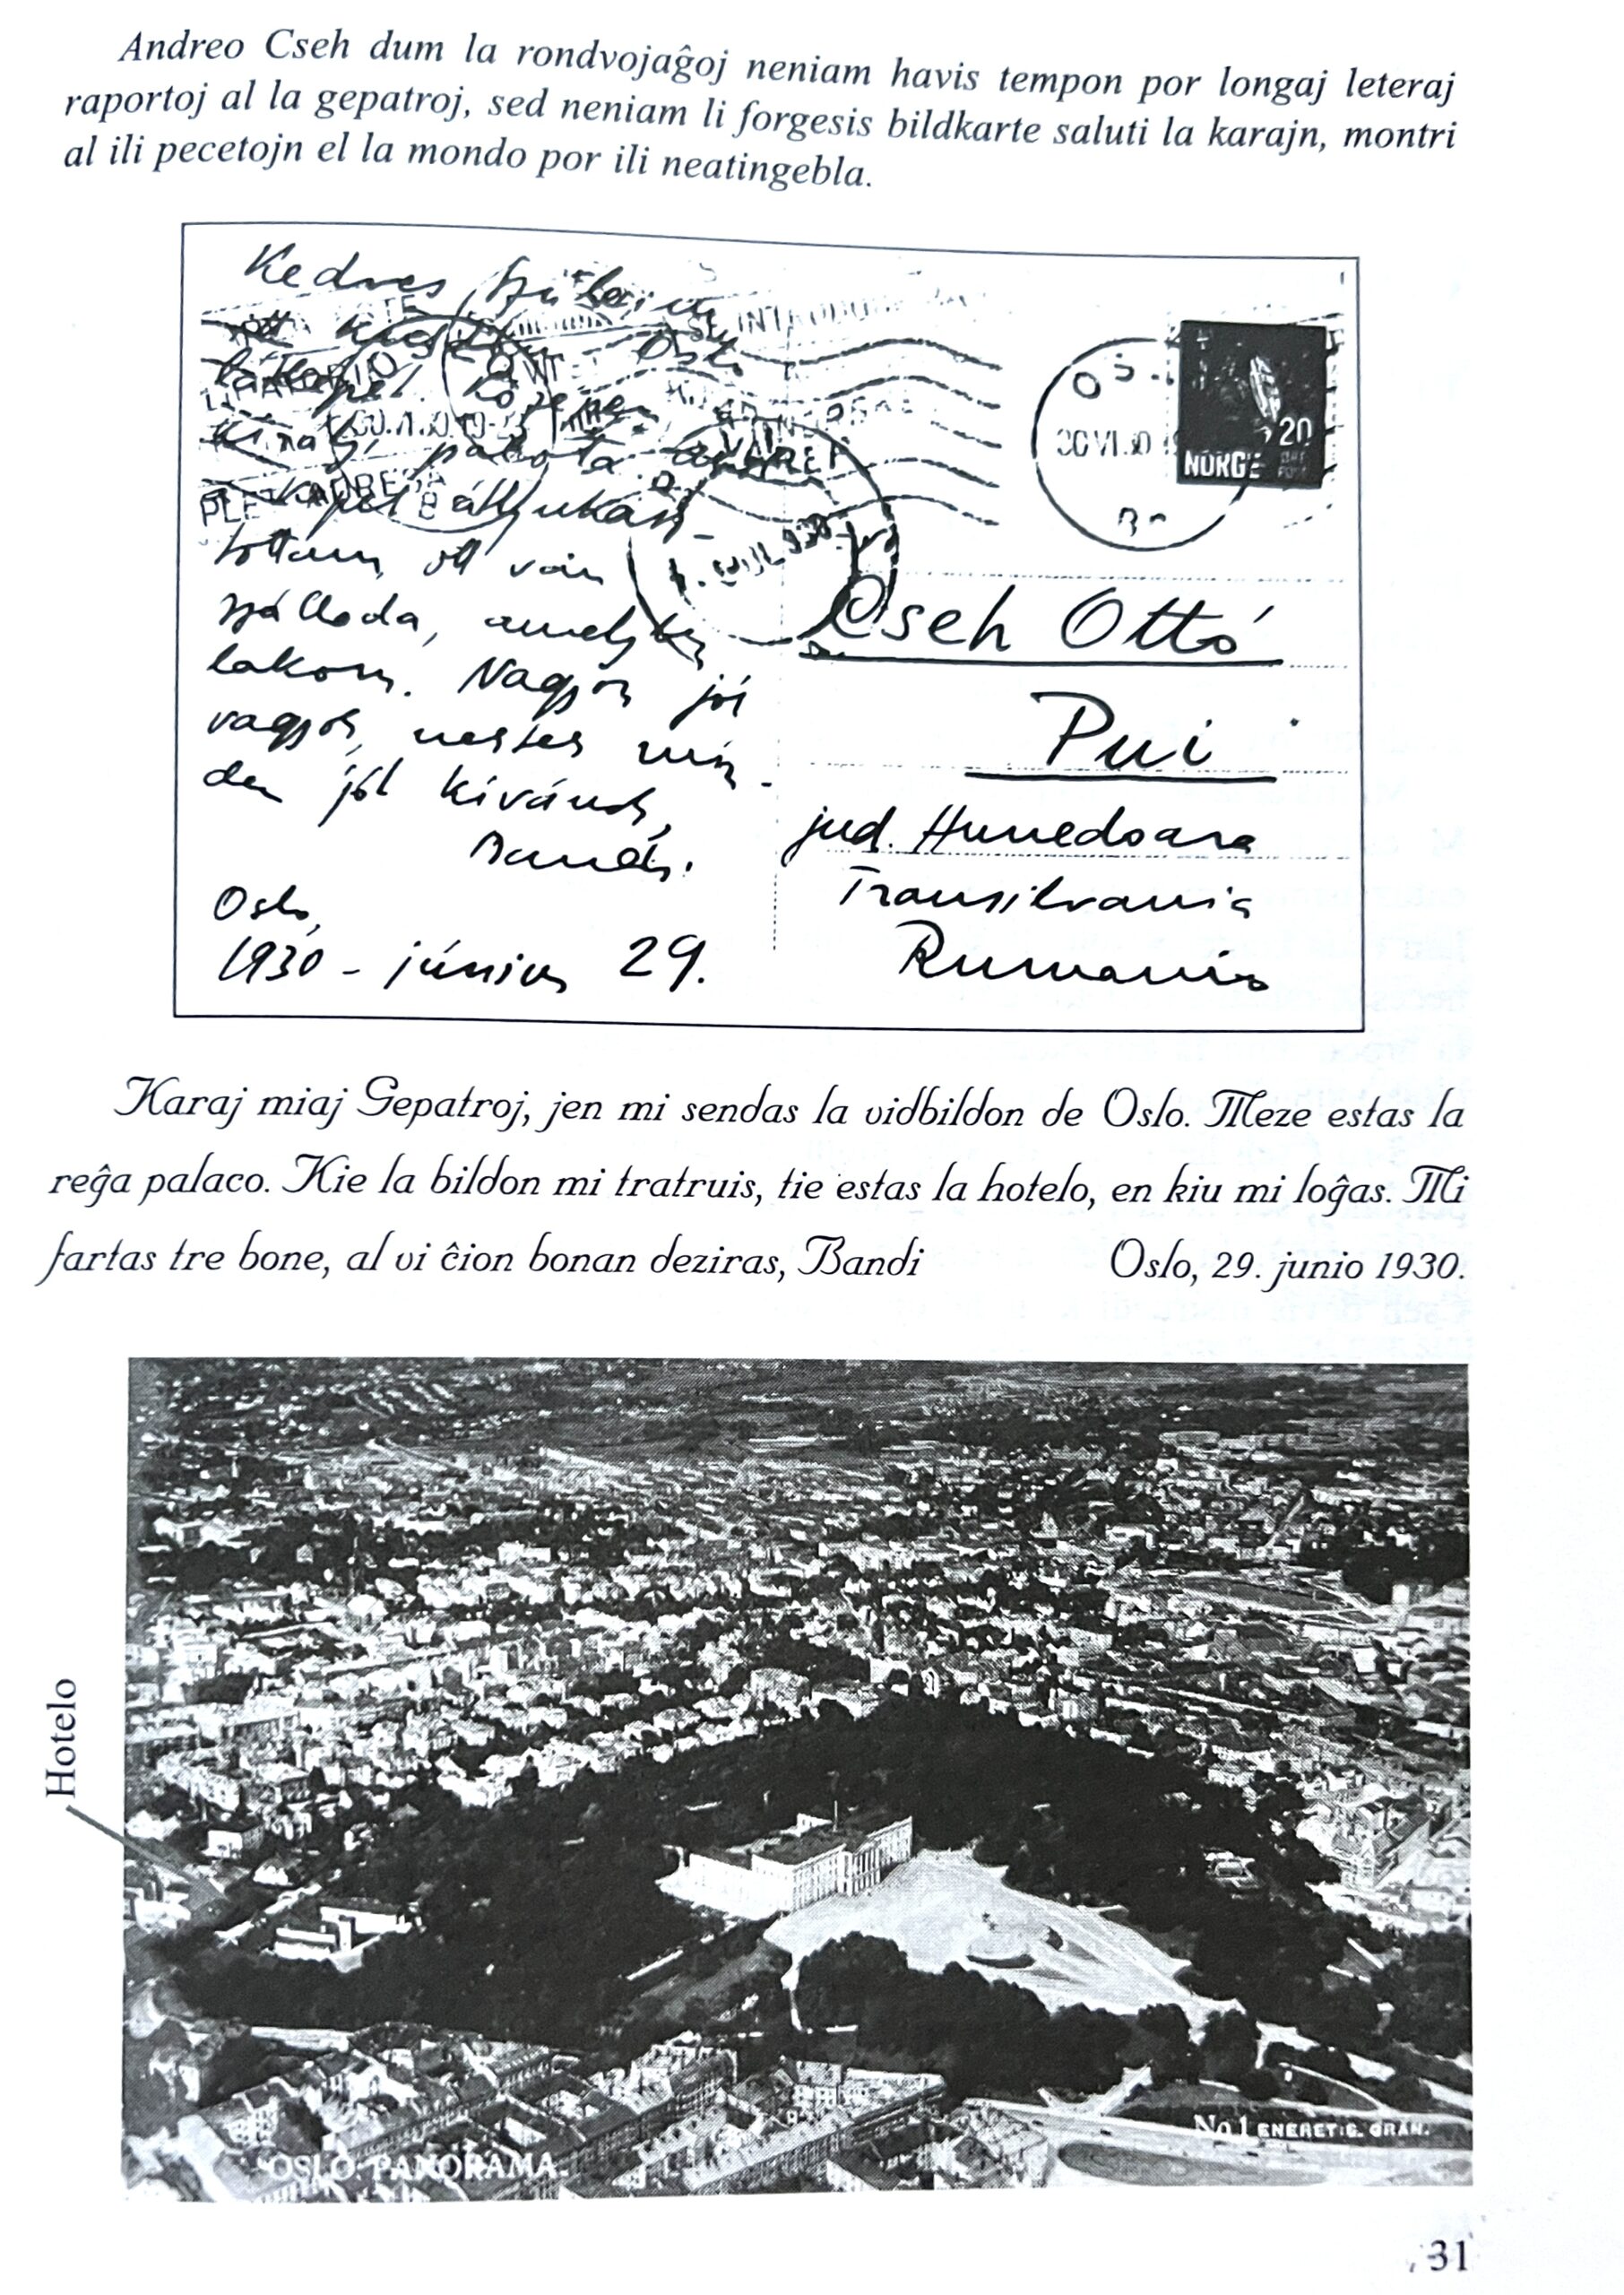 Andreo Cseh dum la rondvojaĝoj neniam havis tempon por longaj leteraj
raportoj al la gepatroj, sed neniam li forgesis bildkarte saluti la karajn, montri
al ili pecetojn el la mondo por ili neatingebla.
Kedves Szüleim
Oslo
látképe. Közepen
királyi palota
kép
tottam, ott van
szálloda, amelyben
lakom. Nagyon jól
vagyok, nektek min-
den jót kívánok,
Oslo,
1930 - június 29.
20
NORGE
Cseh Ottó
Pui
jud. Hunedoara
Transilvania
Rumania
Karaj miaj Gepatroj, jen mi sendas la vidbildon de Oslo. Meze estas la
reĝa palaco. Kie la bildon mi tratruis, tie estas la hotelo, en kiu mi loĝas. Mi
fartas tre bone, al vi ĉion bonan deziras, Bandi Oslo, 29. junio 1930.
Hotelo
OSLO: PANORAMA.
No 1 ENERET: G. GRAN.
31